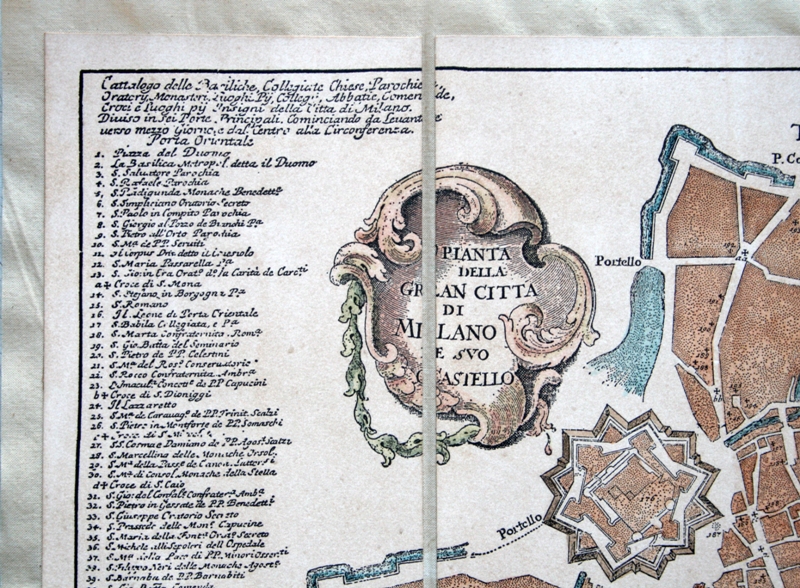 Cattalogo delle Basiliche, Collegiate Chiese, Parochie
Oratory, Monasteri, Luoghi Py, Collegi, Abbatie, Comen de,
Croci e Luoghi pij Insigni della Citta di Milano.
Diviso in Sei Porte Principali, Cominciando da Levante
verso mezzo Giorno, e dal Centro alla Circonferenza.
Porta Orientale
1. Piazza del Duomo
2. La Basilica Metrop. detta il Duomo
3. S. Salvatore Parochia
4. S. Rafaele Parochia
5. S. Radigunda Monache Benedette
6. S. Simpliciano Oratorio Secreto
7. S. Paolo in Compito Parochia
8. S. Giorgio al Pozzo de Bianchi Pa
9. S. Pietro all'Orto Parochia
10. S. Ma. de P.P. Serviti
11. detto il
12. S. Maria Passarella Pa
13. S. Gio: in Era Orato. d. la Carità de Carcti
a+ Croce di S. Mona
14. S. Stefano in Borgogna Pa
15. S. Romano
16. Il Leone di Porta Orientale
17. S. Babila Collegiata, e Pa
18. S. Marta Confraternita Roma
19. S. Gio Batta del Seminario
20. S. Pietro de P.P. Celestini
21. S. Ma. del Rosa. Conservatorio
22. S. Rocco Confraternita Ambra
23. L'Imacula. Concetta. de P.P Capucini
b+ Croce di S. Dioniggi
24. Il Lazzaretto
25. S. Ma. de Caravago. de P.P. Trinit. Scalzi
26. S. Pietro in Monforte de P.P. Somaschi
c+ Croce di S.
27. S.S. Cosma e Damiano de P.P. Agost. Scalzi
28. S. Marcellina delle Monache Orsol.
29. S. Ma della Passe. de Canca.
30. S. Ma. di Consol. Monache della Stella
d+ Croce di S. Caio
31. S. Gio: del Confal. Confrater. Amb.
32. S. Pietro in Gessate de P.P. Benedett.
33. S. Giuseppe Oratorio Secreto
34. S. Prassede delle Mon. Capucine
35. S. Maria della Font. Orat. Secreto
36. S. Michele alli Sepolcri dell Ospedale
37. S. Ma. della Pace di P.P. Minori Osserti
38. S. Filippo Neri delle Monache Agost.
39. S. Barnaba de P.P. Barnabiti
PIANTA
DELLA
GRAN CITTA
DI
MILANO
E SVO
CASTELLO
T
P. Co
Portello
Portello
176
187